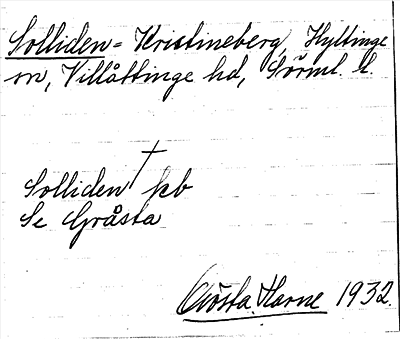 Solliden = Kristineberg, Hyltinge
sn, Villåttinge hd, Sörml. l.
†
Solliden kb
Se Gråsta
Gösta Harne 1932.